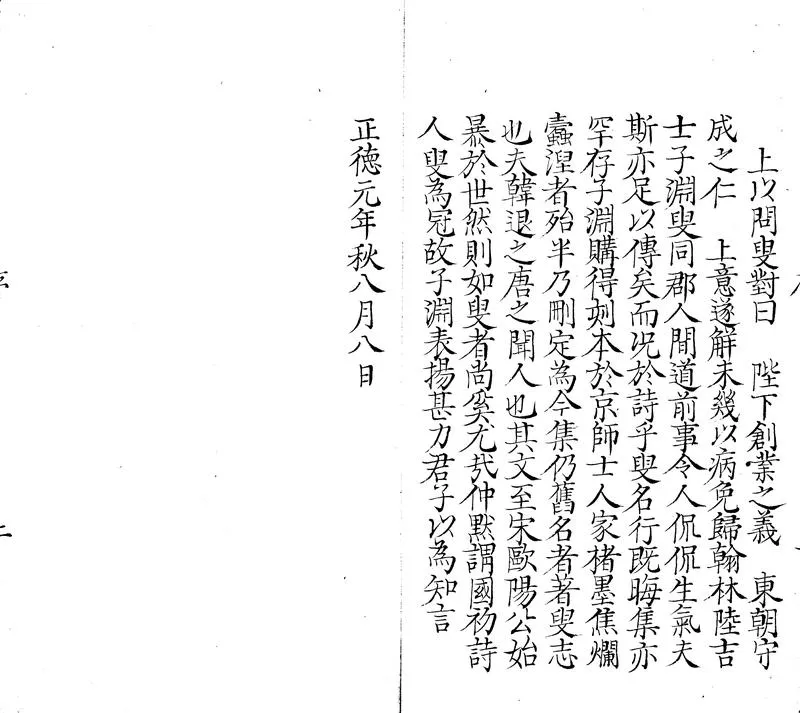 上以問叟對曰　陛下創業之義　東朝守
成之仁　上意遂解未幾以病免歸翰林陸吉
士子淵叟同郡人間道前事令人侃侃生氣夫
斯亦足以傳矣而况於詩乎叟名行既晦集亦
罕存子淵購得刻本於京師士人家楮墨焦爛
蠹湼者殆半乃刪定為今集仍舊名者著叟志
也夫韓退之唐之聞人也其文至宋歐陽公始
暴於世然則如叟者尚奚尤㢤仲默謂國初詩
人叟為冠故子淵表揚甚力君子以為知言
正德元年秋八月八日
序
二